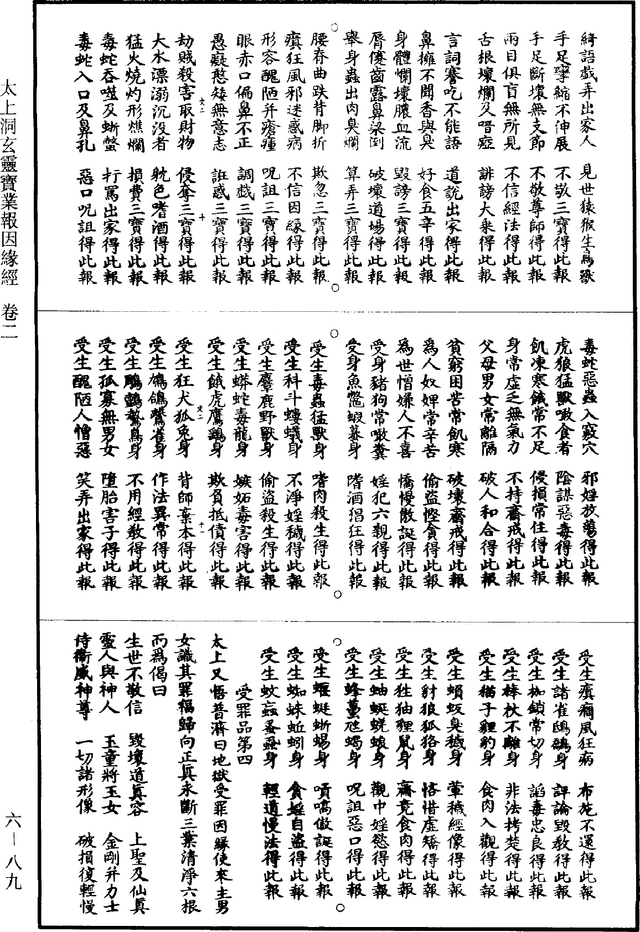 綺語戲弄出家人　見世猿猴生鳥獸
手足攣縮不伸展　不敬三寶得此報
手足斷壞無支節　不敬尊師得此報
兩目俱盲無所見　不信經法得此報
舌根壞爛及喑瘂　誹謗大乘得此報
言詞謇吃不能語　道說出家得此報
鼻擁不聞香與臭　好食五辛得此報
身體爛壞膿血流　毀謗三寶得此報
脣褰齒露鼻梁倒　破壞道場得此報
舉身蟲出肉臭爛　算弄三寶得此報
腰脊曲跌背脚折　欺忽三寶得此報
癲狂風邪迷惑病　不信因緣得此報
形容醜陋并瘡瘇　呪詛三寶得此報
眼赤口偏鼻不正　調戲三寶得此報
愚癡憃矮無意志　誑惑三寶得此報
劫賊殺害取財物　侵奪三寶得此報
大水漂溺沉没者　躭色嗜酒得此報
猛火燒灼形燋爛　損費三寶得此報
毒蛇吞噬及蜥螫　行罵出家得此報
毒蛇入口及鼻孔　惡口呪詛得此報
毒蛇惡蟲入竅穴　邪婬放蕩得此報
虎狼猛獸噉食者　陰謀惡毒得此報
飢凍寒餓常不足　侵損常住得此報
身常虛乏無氣力　不持齋戒得此報
父母男女常離隔　破人和合得此報
貧窮困苦常飢寒　破壞齋戒得此報
爲人奴婢常辛苦　偷盜慳貪得此報
爲世憎嫌人不喜　憍慢傲誕得此報
受身豬狗常噉糞　婬犯六親得此報
受身魚鱉蝦蟇身　嗜酒猖狂得此報
受生毒蟲猛獸身　嗜肉殺生得此報
受生科斗螻蟻身　不淨婬穢得此報
受生麞鹿野獸身　偷盜殺生得此報
受生蟒蛇毒龍身　嫉妬毒害得此報
受生餓虎鷹鷂身　欺負抵債得此報
受生狂犬狐兔身　背師棄本得此報
受生鳩鴿鷰雀身　作法異常得此報
受生鵰鷂鷙鳥身　不用經教得此報
受生孤寡無男女　墮胎害子得此報
受生醜陋人憎惡　笑弄出家得此報
受生癲癎風狂病　布施不還得此報
受生諸雀鴟鵂身　評論毀教得此報
受生枷鎖常切身　謟毒忠良得此報
受生棒杖不離身　非法拷楚得此報
受生猫子貍豹身　食肉入觀得此報
受生蝟蚖臭穢身　葷穢經像得此報
受生豺狼狐狢身　悋惜虛矯得此報
受生狌狖貍鼠身　齋竟食肉得此報
受生蚰蜒蜣蜋身　觀中婬慾得此報
受生蜂蠆虺蝎身　呪詛惡口得此報
受生蝘蜓蜥蜴身　嗔嗃傲誕得此報
受生蜘蛛蚯蚓身　貪婬自盜得此報
受生蚊蝱蚤虱身　輕道慢法得此報
受罪品第四
太上又告普濟曰地獄受罪因緣使來生男
女識其罪福歸向正真永斷三業清淨六根
而爲偈曰
生世不敬信　毀壞道真容　上聖及仙真
靈人與神人　玉童將玉女　金剛并力士
侍衛威神尊　一切諸形像　破損復輕慢
太上洞玄靈寶業報因緣經　卷二
六—八九